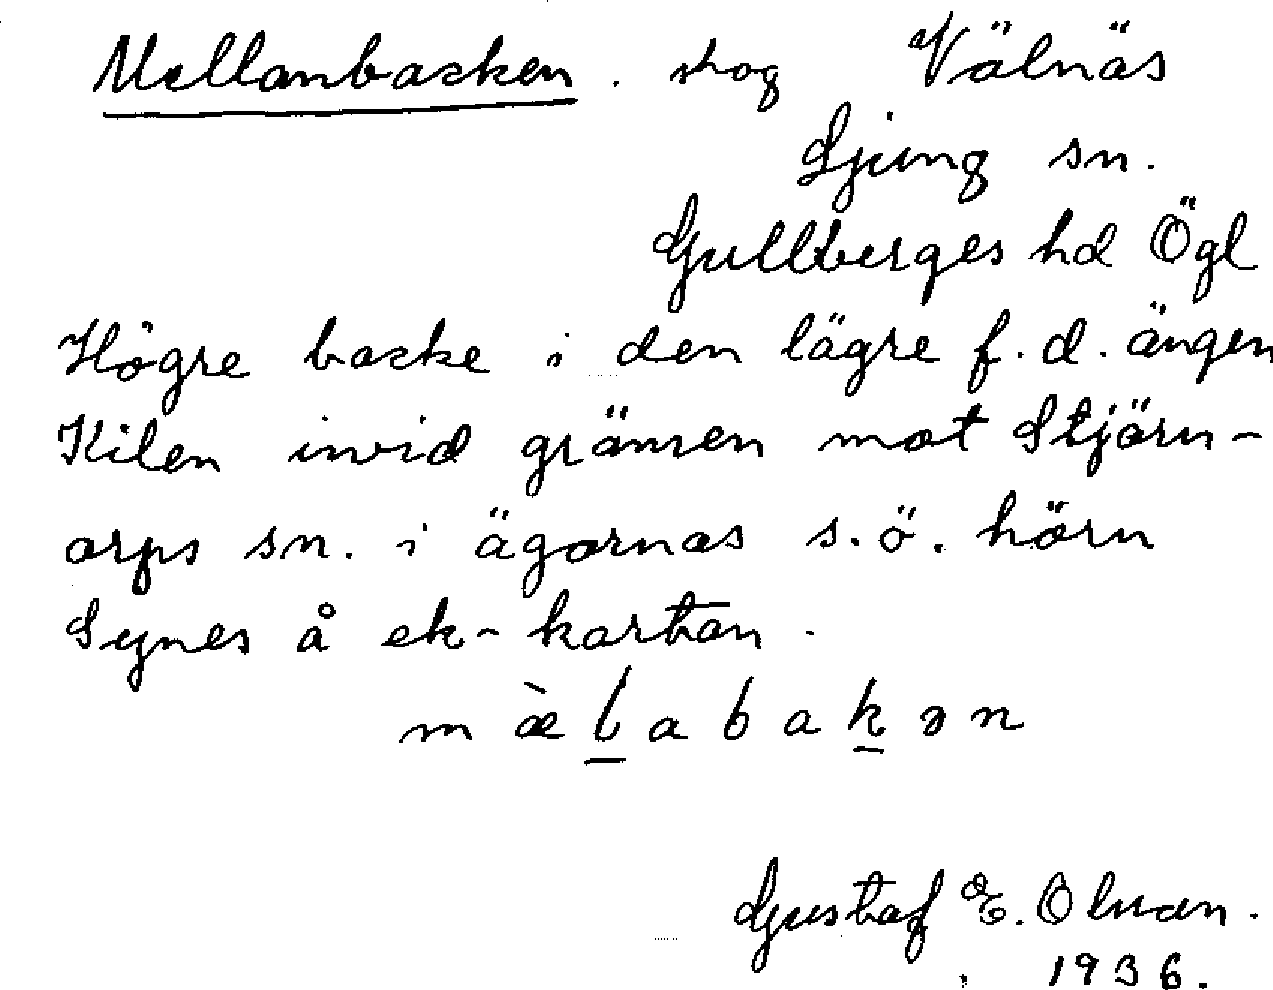 Mellanbacken. skog Välnäs
Ljung sn.
Gullberges hd Ögl
Högre backe i den lägre f.d. ängen
Kilen invid gränsen mot Stjärn-
orps sn. i ägornas s.ö. hörn
Synes å ek-kartan.
mæ̀l̲abak̲ən
Gustaf E. Olsson.
1936.